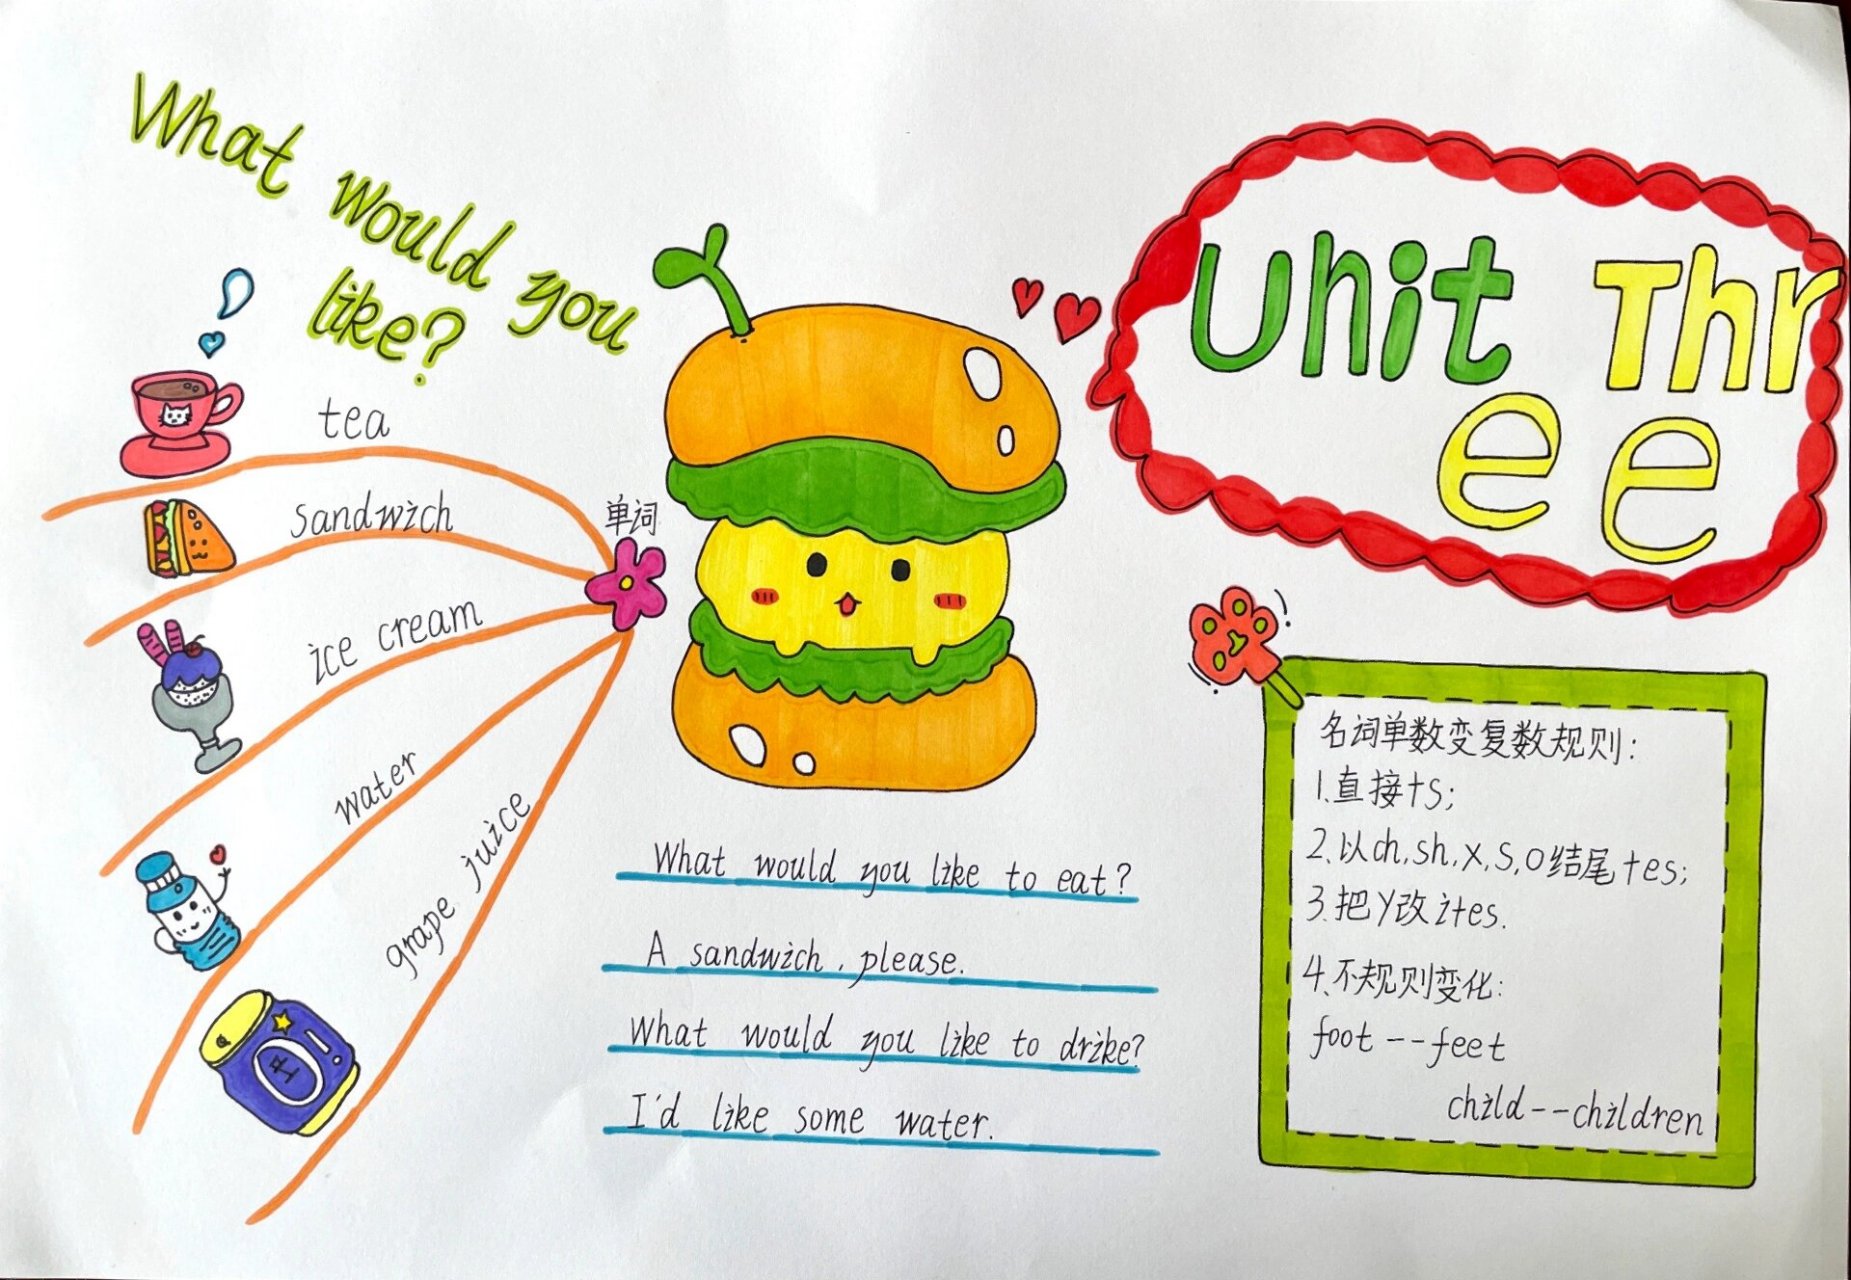 What would you
like?
Unit Thr
ee
tea
单词
sandwich
ice cream
water
grape juice
What would you like to eat?
A sandwich, please.
What would you like to drike?
I'd like some water.
名词单数变复数规则:
1.直接+s;
2.以ch,sh,x,s,o结尾+es;
3.把y改i+es.
4.不规则变化:
foot--feet
child--children